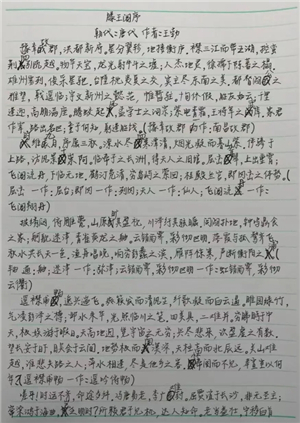 滕王阁序
朝代:唐代 作者:王勃
豫章故郡,洪都新府。星分翼轸,地接衡庐。襟三江而带五湖,控蛮
荆而引瓯越。物华天宝,龙光射牛斗之墟;人杰地灵,徐孺下陈蕃之榻。
雄州雾列,俊采星驰。台隍枕夷夏之交,宾主尽东南之美。都督阎公之
雅望,棨戟遥临;宇文新州之懿范,襜帷暂驻。十旬休假,胜友如云;千里
逢迎,高朋满座。腾蛟起凤,孟学士之词宗;紫电青霜,王将军之武库。家君
作宰,路出名区;童子何知,躬逢胜饯。(豫章故郡 一作:南昌故郡)
三秋。潦水尽而寒潭清,烟光凝而暮山紫。俨骖于
上路,访风景于崇阿。临帝子之长洲,得天人之旧馆。层峦耸翠,上出重霄;
飞阁流丹,下临无地。鹤汀凫渚,穷岛屿之萦回;桂殿兰宫,即冈峦之体势。(
层峦 一作:层台;即冈 一作:列冈;天人 一作:仙人;飞阁流丹 一作:
飞阁翔丹)
披绣闼,俯雕甍,山原旷其盈视,川泽纡其骇瞩。闾阎扑地,钟鸣鼎食
之家;舸舰迷津,青雀黄龙之舳。云销雨霁,彩彻区明。落霞与孤鹜齐飞,
秋水共长天一色。渔舟唱晚,响穷彭蠡之滨,雁阵惊寒,声断衡阳之浦。(
轴 通:舳;迷津 一作:弥津;云销雨霁,彩彻区明 一作:虹销雨霁,彩彻
云衢)
遥襟甫畅,逸兴遄飞。爽籁发而清风生,纤歌凝而白云遏。睢园绿竹,
气凌彭泽之樽;邺水朱华,光照临川之笔。四美具,二难并。穷睇眄于中
天,极娱游于暇日。天高地迥,觉宇宙之无穷;兴尽悲来,识盈虚之有数。
望长安于日下,目吴会于云间。地势极而南溟深,天柱高而北辰远。关山难
越,谁悲失路之人;萍水相逢,尽是他乡之客。怀帝阍而不见,奉宣室以何
年?(遥襟甫畅 一作:遥吟俯畅)
嗟乎!时运不齐,命途多舛。冯唐易老,李广难封。屈贾谊于长沙,非无圣主;
窜梁鸿于海曲,岂乏明时?所赖君子见机,达人知命。老当益壮,宁移白首